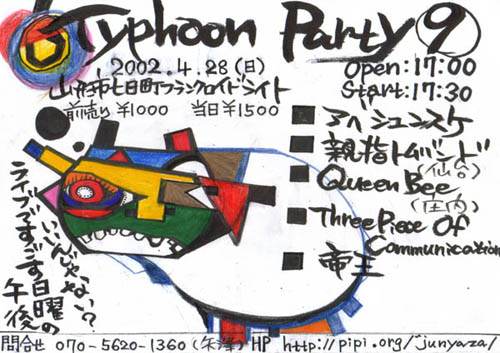 Typhoon Party ⑨
2002.4.28(日)
山形市七日町フランクロイドライト
前売り ¥1000 当日 ¥1500
Open:17:00
Start:17:30
アベシュンスケ
親指トムバンド
(仙台)
Queen Bee
(庄内)
Three Piece Of
Communication
帝王
ライブですごす日曜の午後
いいんじゃない?
問合せ 070-5620-1360(矢澤) HP http://pipi.org/junyaza/